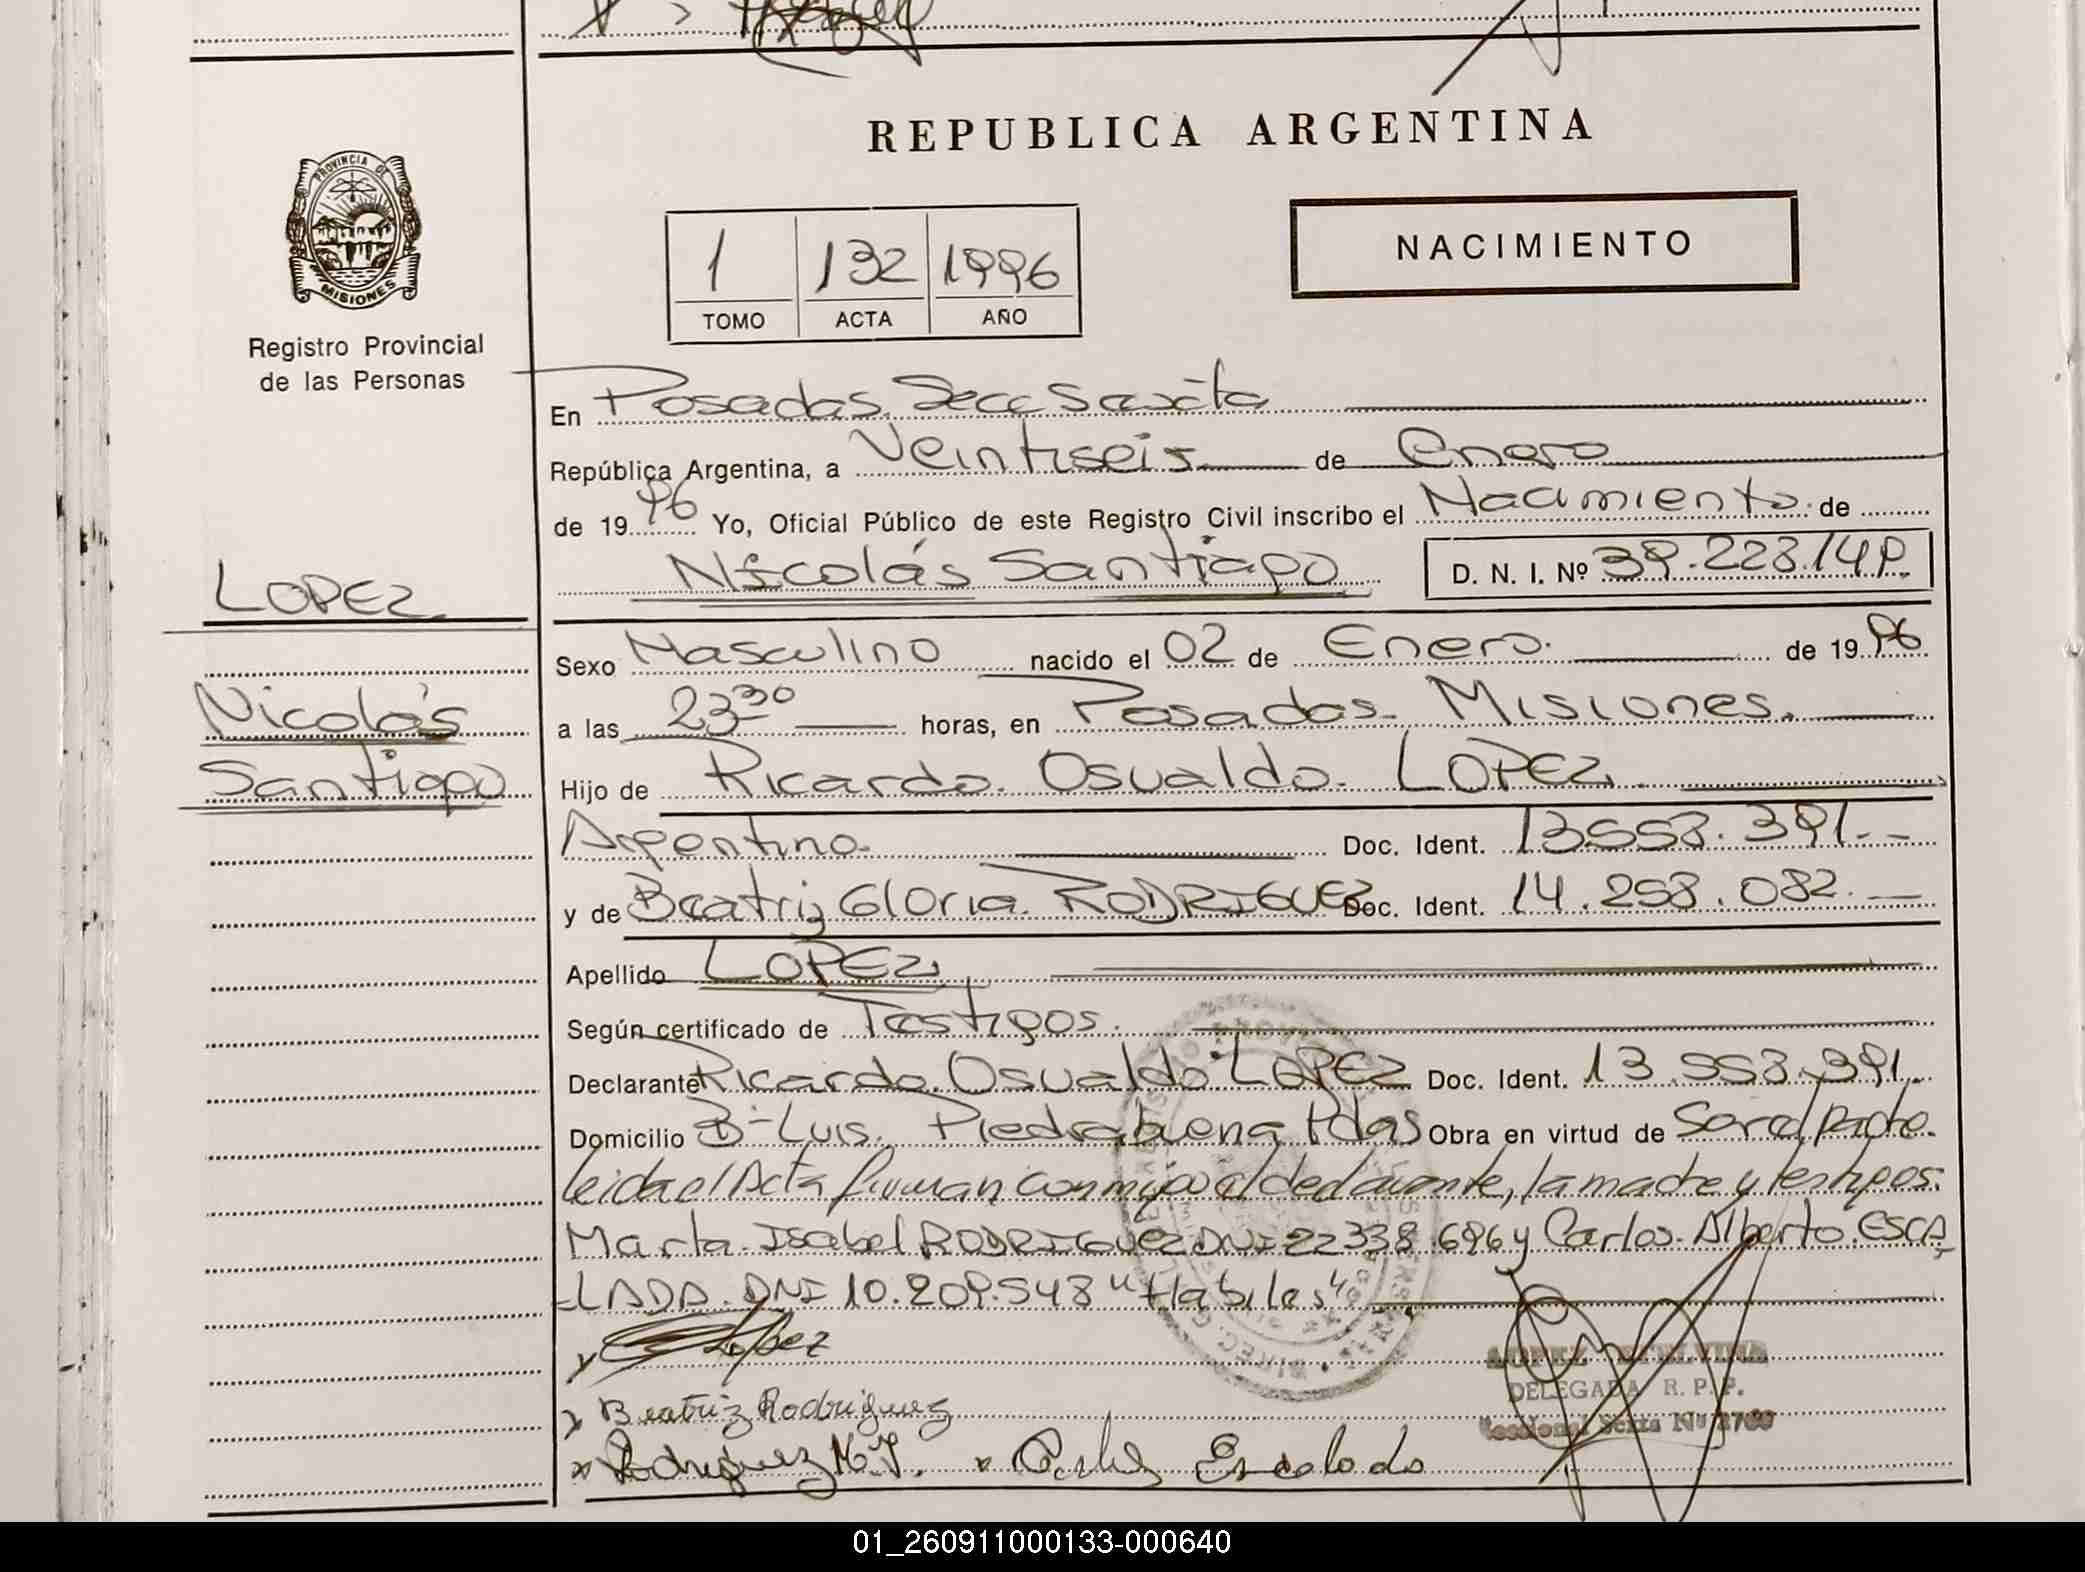 REPUBLICA ARGENTINA
PROVINCIA DE
MISIONES
Registro Provincial
de las Personas
1 132 1996
TOMO ACTA AÑO
NACIMIENTO
En Posadas Secc Sexta
República Argentina, a Veintiseis de Enero
de 1996 Yo, Oficial Público de este Registro Civil inscribo el Nacimiento de
Nicolás Santiago D. N. I. Nº 39.223.149
LOPEZ
Nicolás
Santiago
Sexo Masculino nacido el 02 de Enero. de 1996
a las 23 30 horas, en Posadas Misiones.
Hijo de Ricardo Osvaldo LOPEZ
Argentino Doc. Ident. 13.553.391
y de Beatriz Gloria RODRIGUEZ Doc. Ident. 14.258.082
Apellido LOPEZ
Según certificado de Testigos.
Declarante Ricardo Osvaldo LOPEZ Doc. Ident. 13.553.391
Domicilio Bº Luis Piedrabuena Pdas Obra en virtud de Ser el padre.
leida el Acta firman conmigo el declarante, la madre y testigos:
Marta Isabel RODRIGUEZ DNI 22338.696 y Carlos Alberto ESCA
LADA DNI 10.209.548 "Habiles"
Lopez
x Beatriz Rodriguez
x Rodriguez M. I. x Carlos Escalada
LOPEZ
DELEGADA R. P. P.
Seccional Sexta Nº 2760
01_260911000133-000640